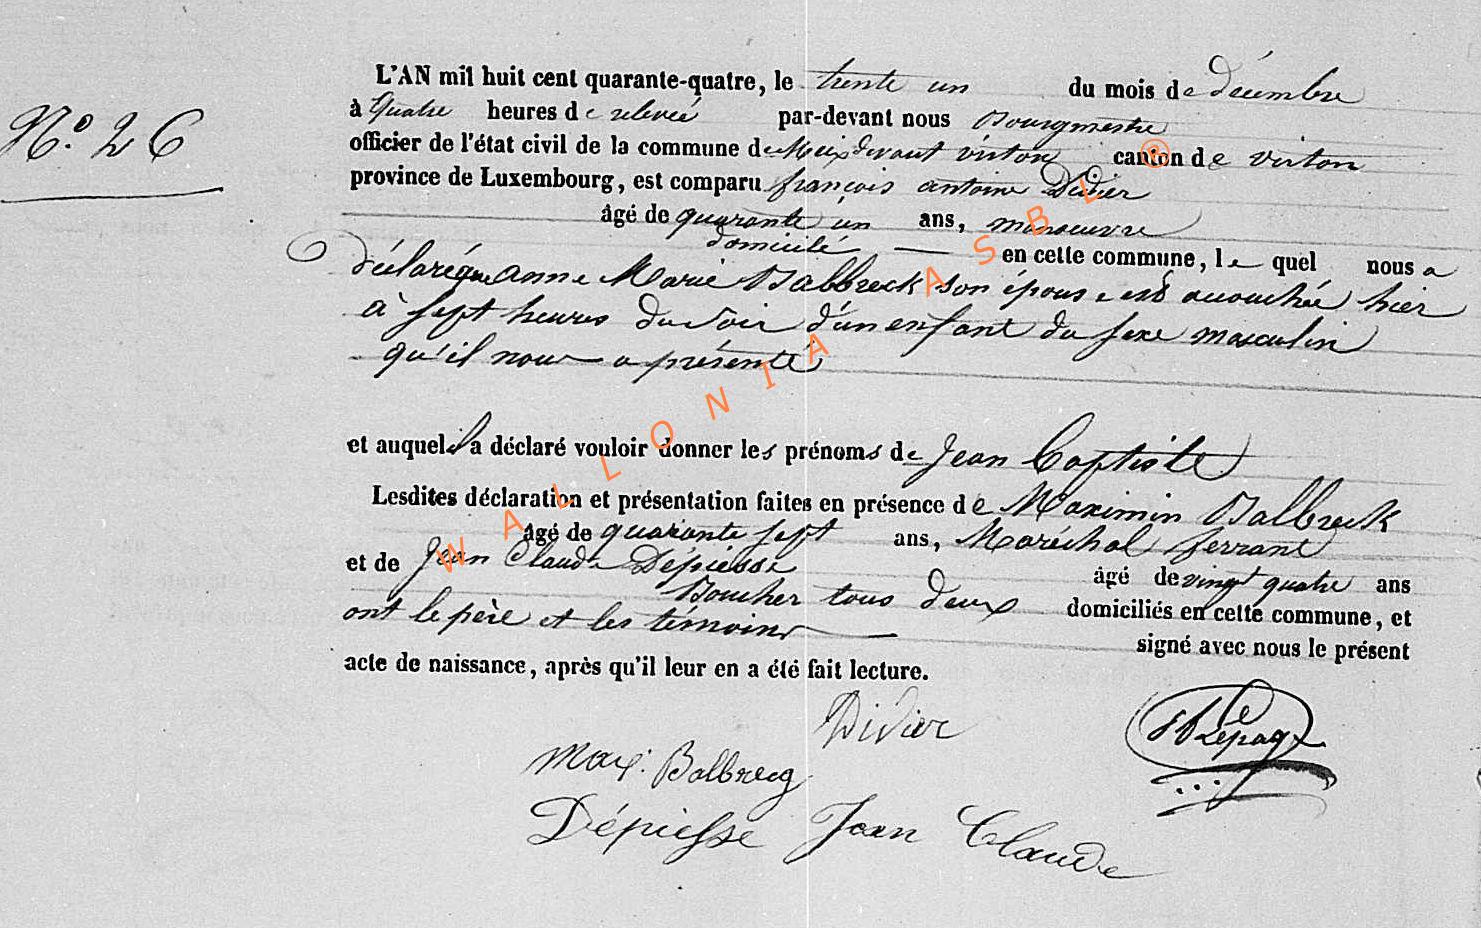 N.° 26
L'AN mil huit cent quarante-quatre, le trente un du mois de décembre
à quatre heures de relevée par-devant nous Bourgmestre
officier de l'état civil de la commune de Meix devant virton canton de virton
province de Luxembourg, est comparu françois antoine Didier
âgé de quarante un ans, manoeuvre
domicilé en cette commune, le quel nous a
déclaré que anne Marie Balbreck son épouse est accouchée hier
à sept heures du soir d'un enfant du sexe masculin
qu'il nous a présenté
et auquel il a déclaré vouloir donner les prénoms de Jean Baptiste
Lesdites déclaration et présentation faites en présence de Maximin Balbreck
âgé de quarante sept ans, Maréchal ferrant
et de Jean Claude Dépiesse âgé de vingt quatre ans
Boucher tous deux domiciliés en cette commune, et
ont le père et les témoins signé avec nous le présent
acte de naissance, après qu'il leur en a été fait lecture.
Didier
Lepage
Max. Balbrecq
Dépiesse Jean Claude
WALLONIA ASBL ®